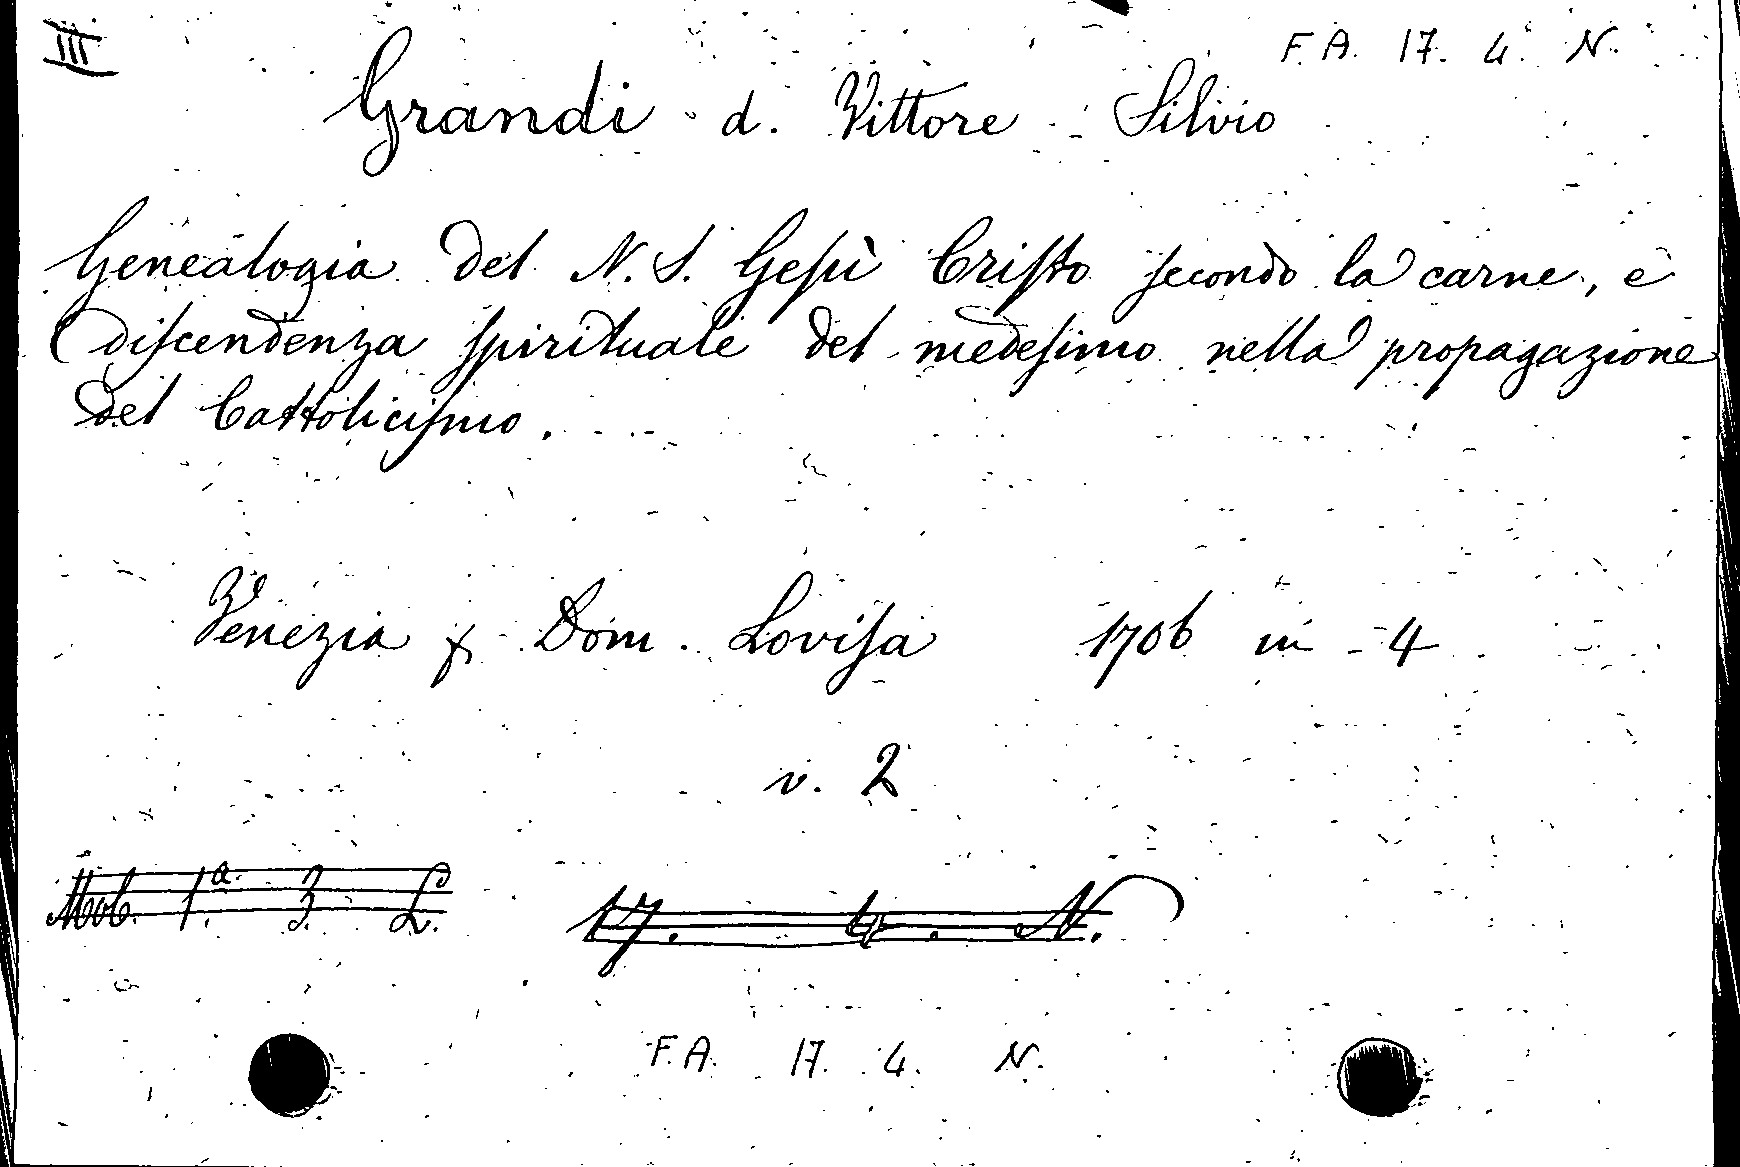 III
F. A. 17. 4. N.
Grandi d. Vittore Silvio
Genealogia del N. S. Gesù Cristo secondo la carne, è
discendenza spirituale del medesimo nella propagazione
del Cattolicismo.
Venezia p Dom. Lovisa 1706 in 4
v. 2
Mob. 1.a 3. L.
17. 4. N.
F. A. 17. 4. N.